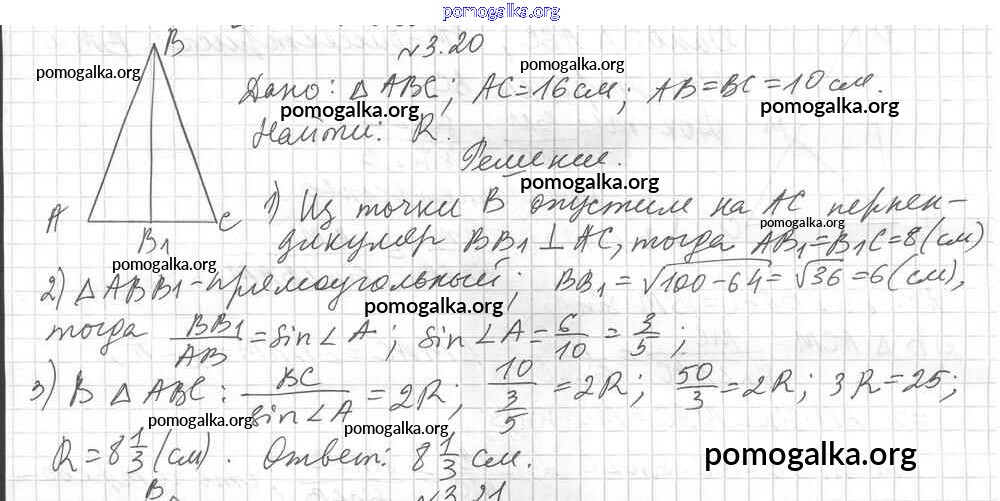 pomogalka.org
№3.20
B
pomogalka.org
pomogalka.org
Дано: △ABC; AC=16см; AB=BC=10см.
pomogalka.org
pomogalka.org
Найти: R.
Решение.
pomogalka.org
1) Из точки B опустим на AC перпен-
A
C
B1
pomogalka.org
дикуляр BB1⊥AC, тогда AB1=B1C=8(см)
pomogalka.org
2) △ABB1-прямоугольный; BB1=√100-64=√36=6(см),
pomogalka.org
тогда BB1/AB=sin∠A; sin∠A=6/10=3/5;
3) В △ABC: BC/sin∠A=2R; 10/(3/5)=2R; 50/3=2R; 3R=25;
pomogalka.org
pomogalka.org
R=8 1/3 (см). Ответ: 8 1/3 см.
pomogalka.org
B
№3.21